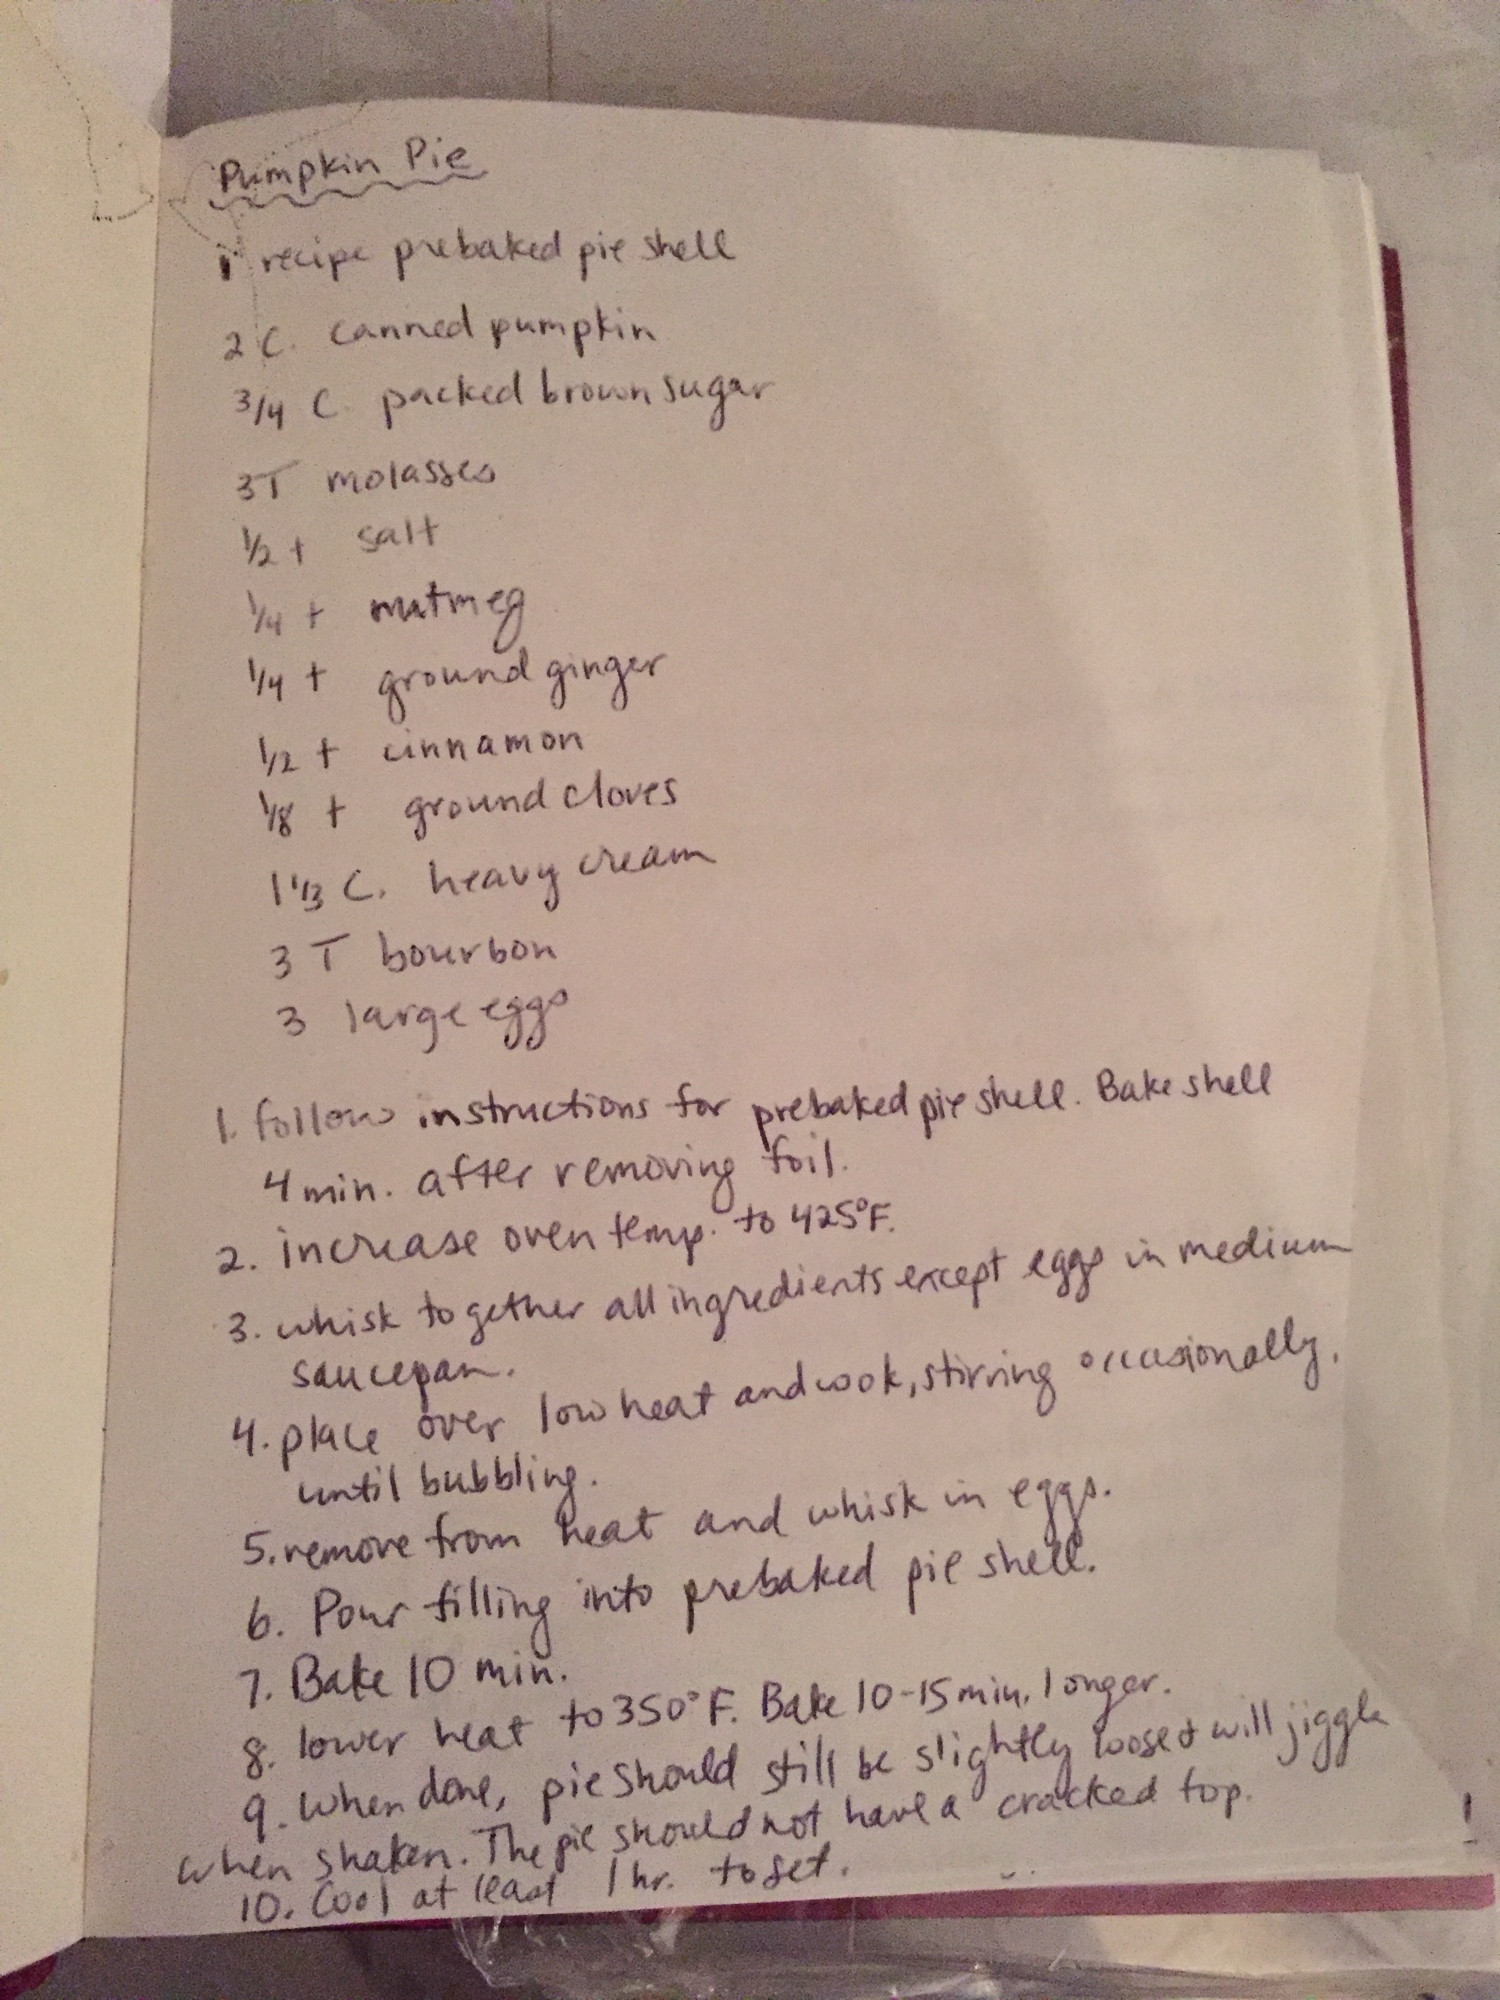 Pumpkin Pie
1 recipe prebaked pie shell
2 C. canned pumpkin
3/4 C. packed brown sugar
3 T molasses
1/2 t salt
1/4 t nutmeg
1/4 t ground ginger
1/2 t cinnamon
1/8 t ground cloves
1 1/3 C. heavy cream
3 T bourbon
3 large eggs
1. follow instructions for prebaked pie shell. Bake shell
4 min. after removing foil.
2. increase oven temp. to 425°F.
3. whisk together all ingredients except eggs in medium
saucepan.
4. place over low heat and cook, stirring occasionally,
until bubbling.
5. remove from heat and whisk in eggs.
6. Pour filling into prebaked pie shell.
7. Bake 10 min.
8. lower heat to 350°F. Bake 10-15 min. longer.
9. When done, pie should still be slightly loose & will jiggle
when shaken. The pie should not have a cracked top.
10. Cool at least 1 hr. to set.